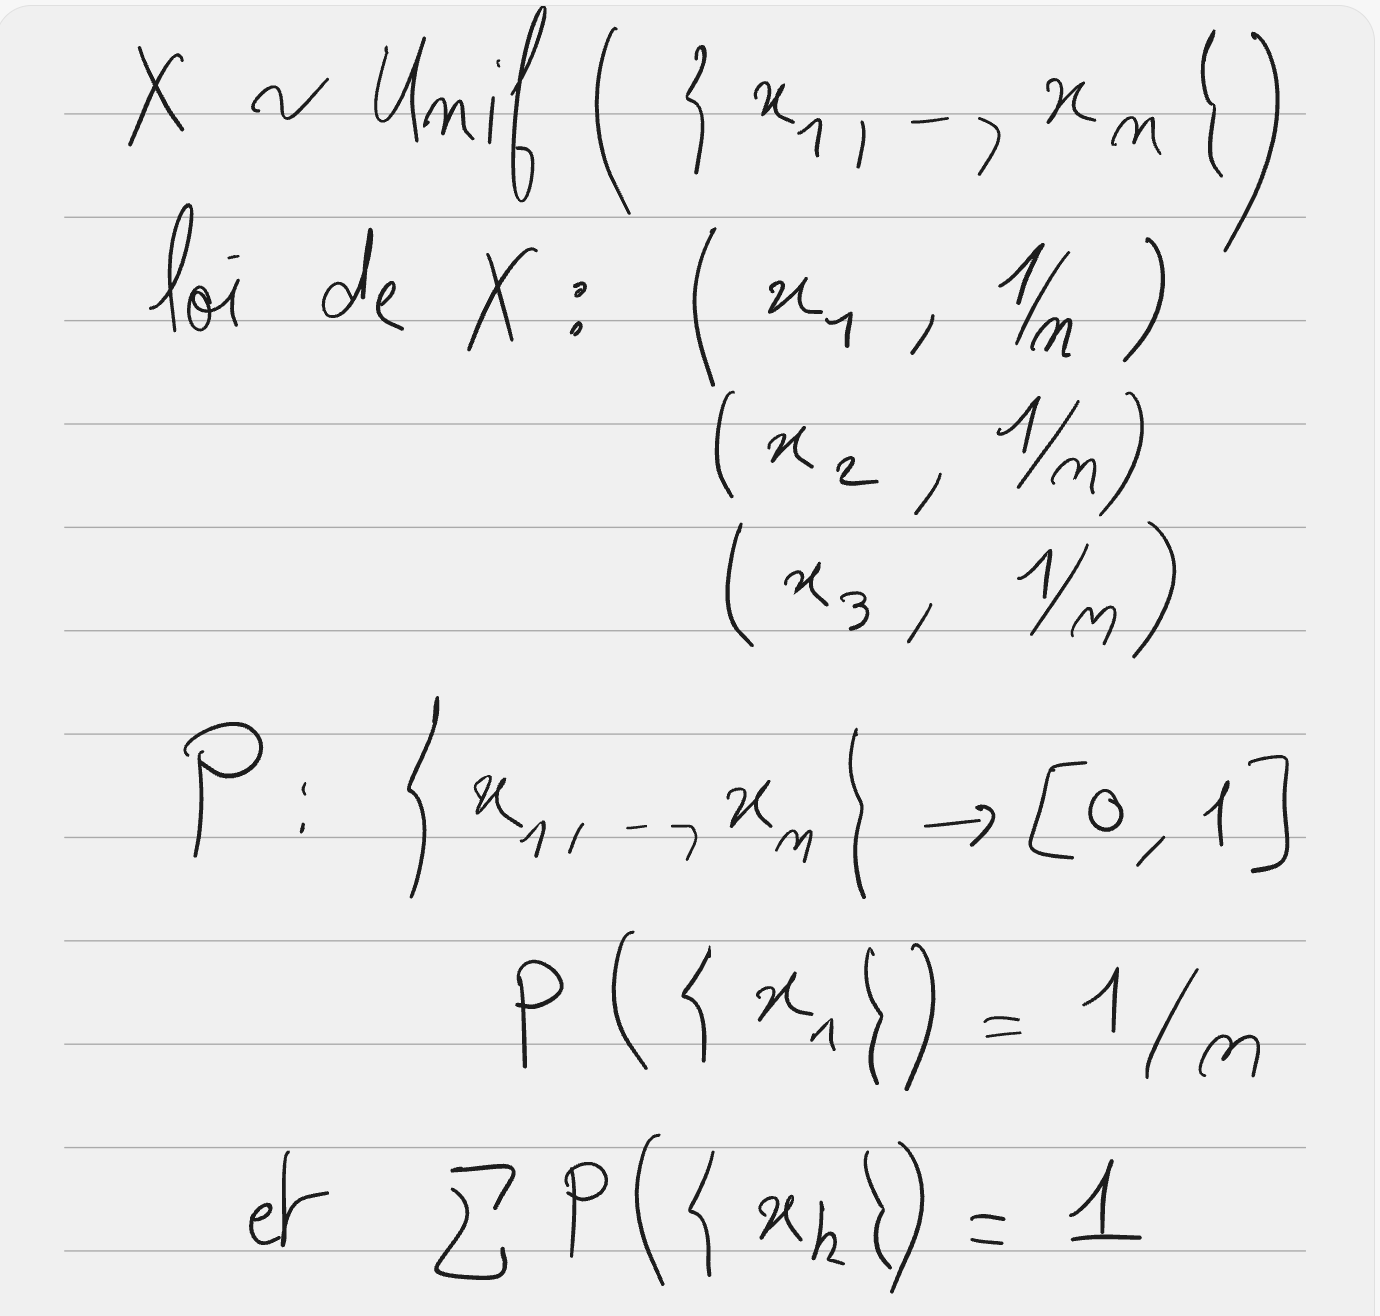 X ~ Unif ({x₁, --, xₙ})
loi de X : (x₁, 1/n)
(x₂, 1/n)
(x₃, 1/n)
P : {x₁, --, xₙ} → [0, 1]
P({x₁}) = 1/n
et ∑ P({xₖ}) = 1